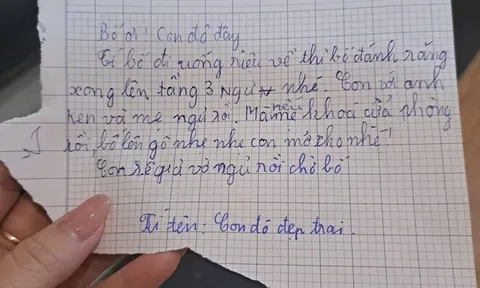 Bố ơi! Con đô đây
Tí bố đi uống riêu về thì bố đánh răng
xong lên tầng 3 ngủ nhé. Con với anh
ken và mẹ ngủ rồi. Mà nếu mẹ khoá cửa phòng
rồi, bố lên gõ nhẹ nhẹ con mở cho nhé!
Con sẽ giả vờ ngủ rồi chờ bố
Kí tên: Con đô đẹp trai.